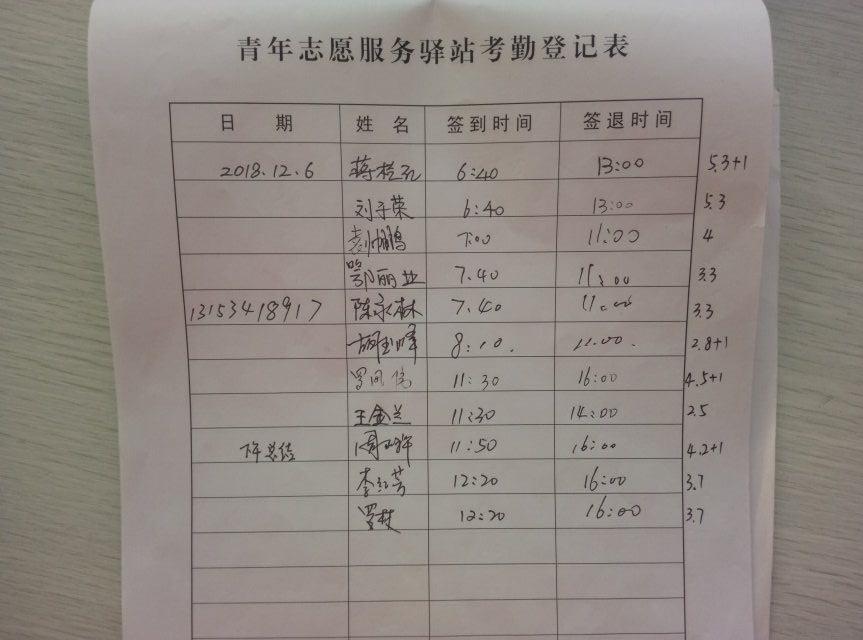 青年志愿服务驿站考勤登记表
日 期 姓 名 签到时间 签退时间
2018.12.6 蒋 6:40 13:00 5.3+1
刘子荣 6:40 13:00 5.3
鹏 7:00 11:00 4
鄂丽业 7.40 11:00 3.3
13153418917 陈永林 7.40 11:00 3.3
胡玉峰 8:10. 11.00. 2.8+1
罗凤 11:30 16:00 4.5+1
王金兰 11:30 14:00 2.5
下午总结 周 11:50 16:00 4.2+1
李红芳 12:20 16:00 3.7
罗 12:20 16:00 3.7